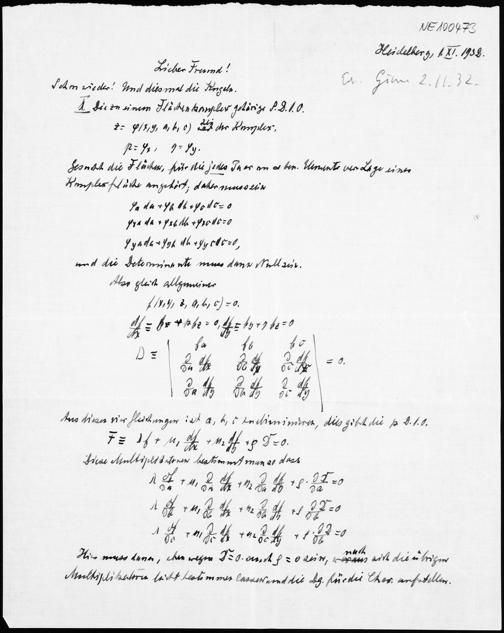 NE100473
Heidelberg, 1. XI. 1932.
Er. 2.11.32.
Lieber Freund!
Schon wieder! Und diesmal die Kugeln.
I. Die zu einem Flächenkomplex gehörige P.D.G.
z = φ(x, y, a, b, c) sei der Komplex.
p = φx, q = φy.
Gesucht die Flächen, für die jedes Paar an Elemente der Lage eines
Komplexfläche angehört; daher muss sein
φa da + φb db + φc dc = 0
φxa da + φxb db + φxc dc = 0
φya da + φyb db + φyc dc = 0,
und die Determinante muss dann Null sein.
Also gleich allgemeiner
f(x, y, z, a, b, c) = 0.
df/dx ≡ fx + p fz = 0, df/dy ≡ fy + q fz = 0
fa fb fc
D ≡ ∂/∂a df/dx ∂/∂b df/dx ∂/∂c df/dx = 0.
∂/∂a df/dy ∂/∂b df/dy ∂/∂c df/dy
Aus diesen vier Gleichungen ist a, b, c zu eliminieren, dies gibt die p. D.G.
F ≡ λf + μ₁ df/dx + μ₂ df/dy + ρ D = 0.
Diese Multiplikatoren bestimmt man so dass
λ ∂f/∂a + μ₁ ∂/∂a df/dx + μ₂ ∂/∂a df/dy + ρ · ∂D/∂a = 0
λ ∂f/∂b + μ₁ ∂/∂b df/dx + μ₂ ∂/∂b df/dy + ρ ∂D/∂b = 0
λ ∂f/∂c + μ₁ ∂/∂c df/dx + μ₂ ∂/∂c df/dy + ρ ∂D/∂c = 0
Hier muss dann, eben wegen D = 0 auch ρ = 0 sein, nach sich die übrigen
Multiplikatoren leicht bestimmen lassen und die Dg. für die Char. aufstellen.